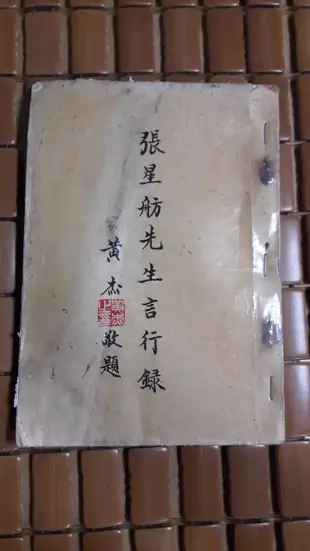 張星舫先生言行録
黃杰敬題